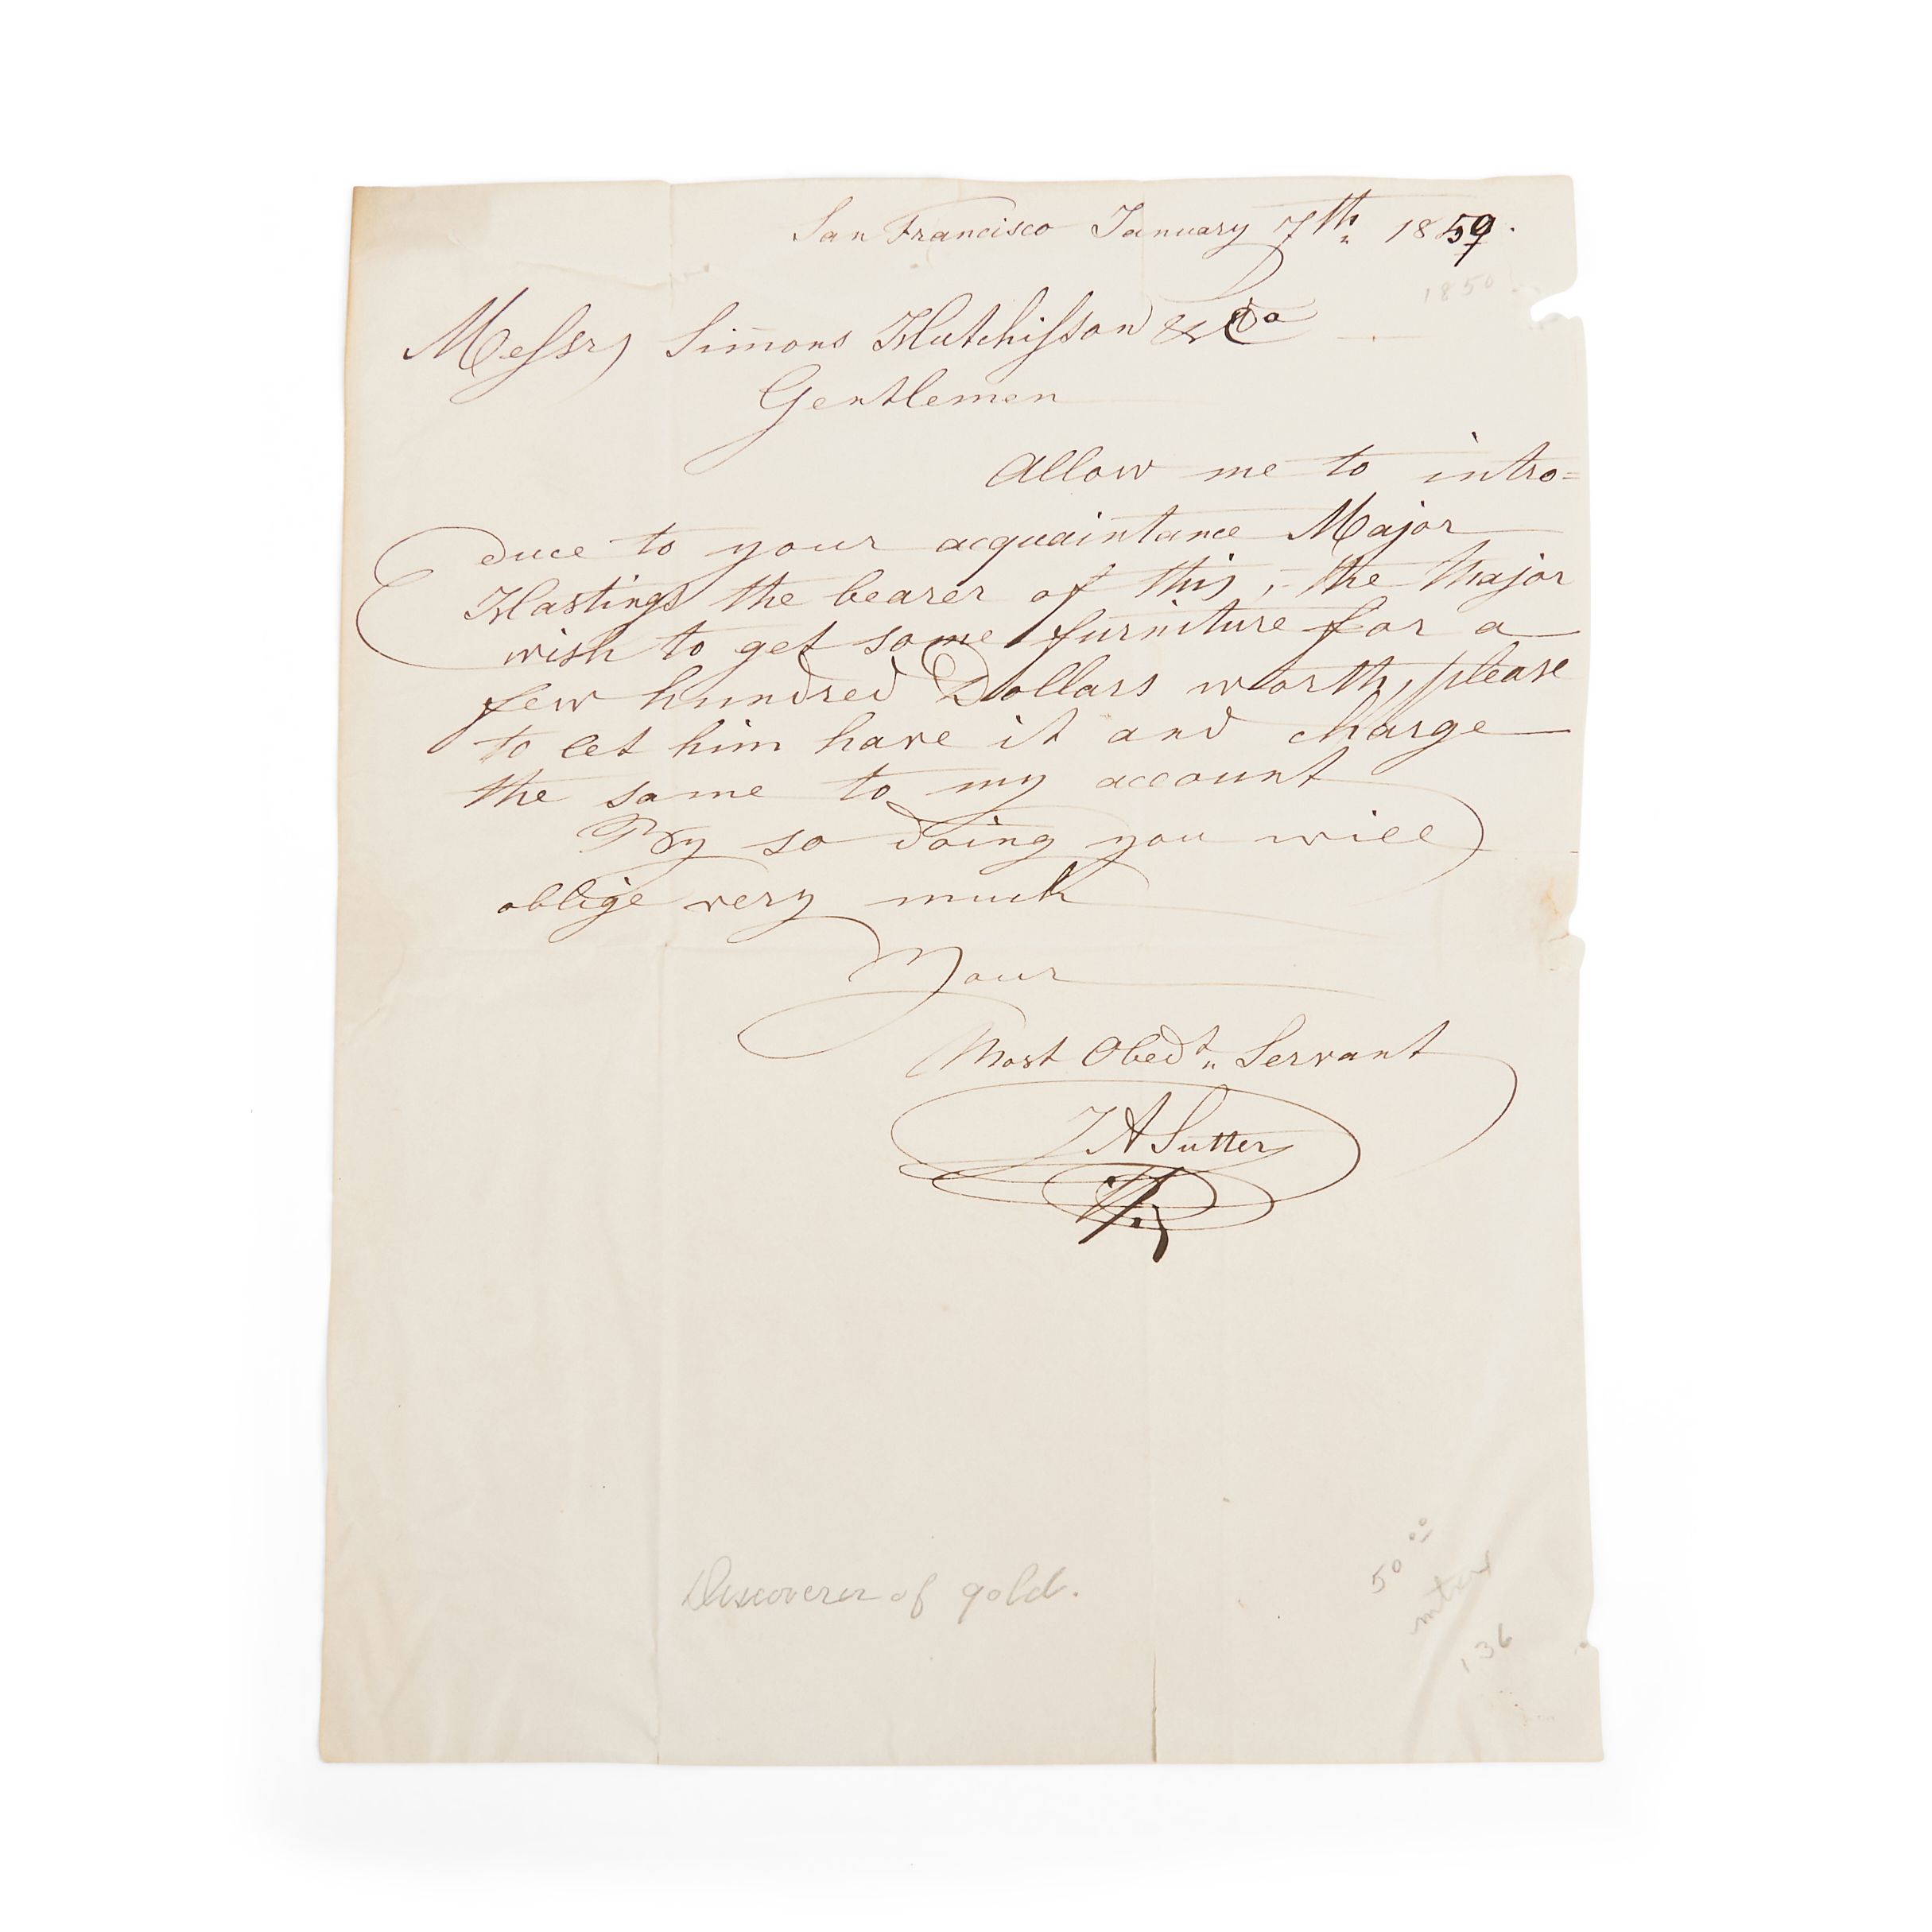 San Francisco January 7th 1859.
1850
Messrs Simmons Hutchisson & Co
Gentlemen
Allow me to intro=
duce to your acquaintance Major
Hastings the bearer of this, the Major
wish to get some furniture for a
few hundred Dollars worth, please
to let him have it and charge
the same to my account
By so doing you will
oblige very much
Your
Most Obedt. Servant
J A Sutter
Discoverer of gold.
50 00
136